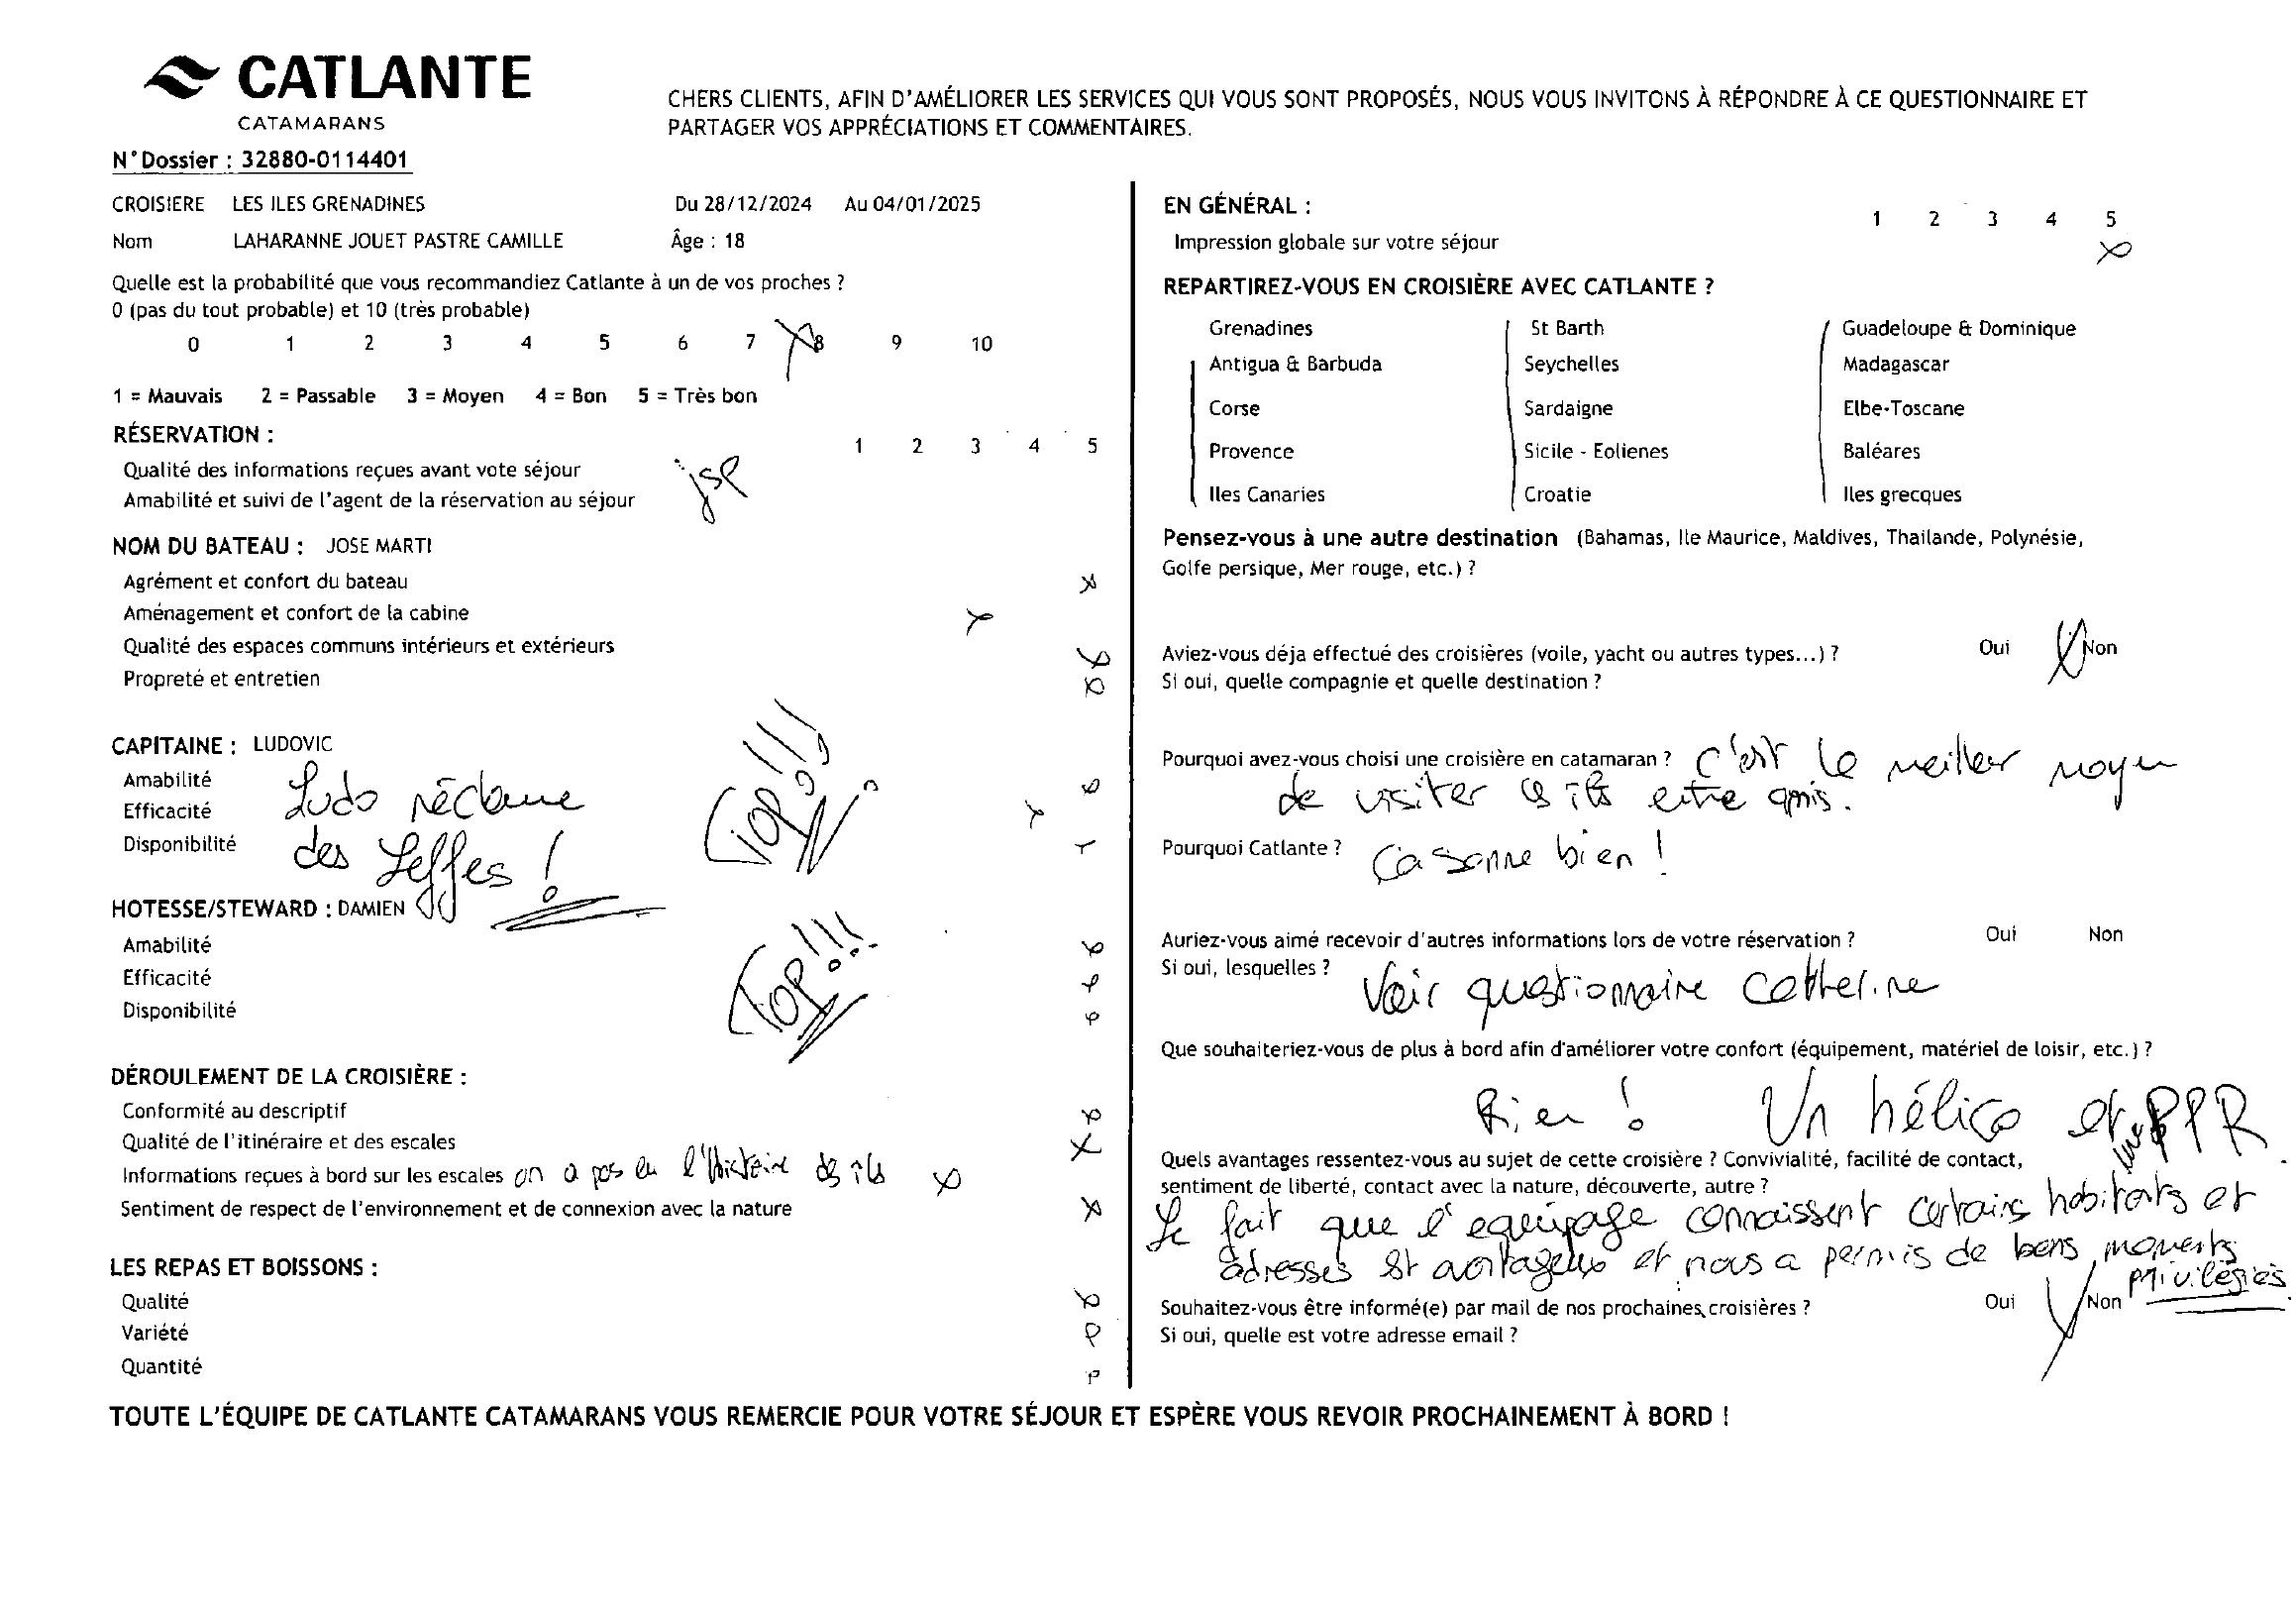 CATLANTE
CATAMARANS
CHERS CLIENTS, AFIN D'AMÉLIORER LES SERVICES QUI VOUS SONT PROPOSÉS, NOUS VOUS INVITONS À RÉPONDRE À CE QUESTIONNAIRE ET
PARTAGER VOS APPRÉCIATIONS ET COMMENTAIRES.
N°Dossier : 32880-0114401
CROISIERE LES ILES GRENADINES Du 28/12/2024 Au 04/01/2025
Nom LAHARANNE JOUET PASTRE CAMILLE Âge : 18
Quelle est la probabilité que vous recommandiez Catlante à un de vos proches ?
0 (pas du tout probable) et 10 (très probable)
0 1 2 3 4 5 6 7 8 9 10
1 = Mauvais 2 = Passable 3 = Moyen 4 = Bon 5 = Très bon
RÉSERVATION : 1 2 3 4 5
Qualité des informations reçues avant vote séjour
Amabilité et suivi de l'agent de la réservation au séjour
jsp
NOM DU BATEAU : JOSE MARTI
Agrément et confort du bateau
Aménagement et confort de la cabine
Qualité des espaces communs intérieurs et extérieurs
Propreté et entretien
CAPITAINE : LUDOVIC
Amabilité
Efficacité
Disponibilité
Ludo réclame
des Leffes !
Top !!!
HOTESSE/STEWARD : DAMIEN
Amabilité
Efficacité
Disponibilité
Top !!!
DÉROULEMENT DE LA CROISIÈRE :
Conformité au descriptif
Qualité de l'itinéraire et des escales
Informations reçues à bord sur les escales on a pas eu l'histoire des îles
Sentiment de respect de l'environnement et de connexion avec la nature
LES REPAS ET BOISSONS :
Qualité
Variété
Quantité
EN GÉNÉRAL : 1 2 3 4 5
Impression globale sur votre séjour
REPARTIREZ-VOUS EN CROISIÈRE AVEC CATLANTE ?
Grenadines St Barth Guadeloupe & Dominique
Antigua & Barbuda Seychelles Madagascar
Corse Sardaigne Elbe-Toscane
Provence Sicile - Eoliennes Baléares
Iles Canaries Croatie Iles grecques
Pensez-vous à une autre destination (Bahamas, Ile Maurice, Maldives, Thailande, Polynésie,
Golfe persique, Mer rouge, etc.) ?
Aviez-vous déja effectué des croisières (voile, yacht ou autres types...) ? Oui Non
Si oui, quelle compagnie et quelle destination ?
Pourquoi avez-vous choisi une croisière en catamaran ? C'est le meiller moyen
de visiter les îles entre amis.
Pourquoi Catlante ? Ca sonne bien !
Auriez-vous aimé recevoir d'autres informations lors de votre réservation ? Oui Non
Si oui, lesquelles ? Voir questionnaire Catherine
Que souhaiteriez-vous de plus à bord afin d'améliorer votre confort (équipement, matériel de loisir, etc.) ?
Rien ! Un hélico et PPR
Quels avantages ressentez-vous au sujet de cette croisière ? Convivialité, facilité de contact,
sentiment de liberté, contact avec la nature, découverte, autre ?
Le fait que l'equipage connaissent certains habitants et
adresses est avantageux et nous a permis de bons moments
privilégiés.
Souhaitez-vous être informé(e) par mail de nos prochaines croisières ? Oui Non
Si oui, quelle est votre adresse email ?
TOUTE L'ÉQUIPE DE CATLANTE CATAMARANS VOUS REMERCIE POUR VOTRE SÉJOUR ET ESPÈRE VOUS REVOIR PROCHAINEMENT À BORD !